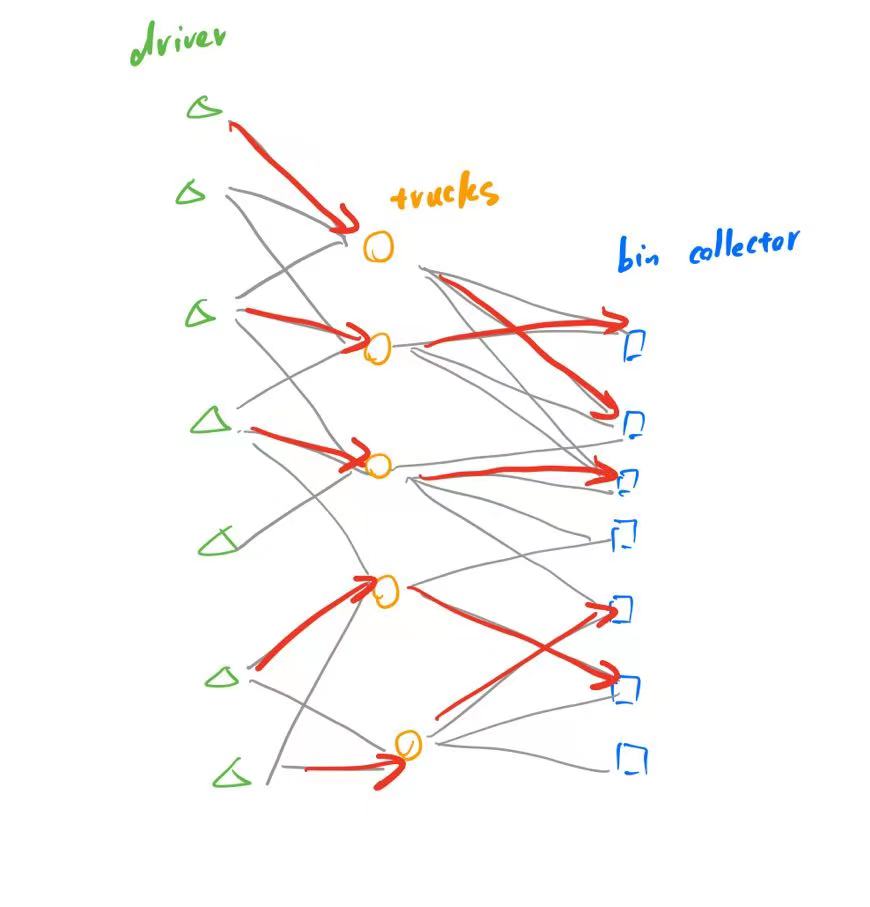 driver
trucks
bin collector